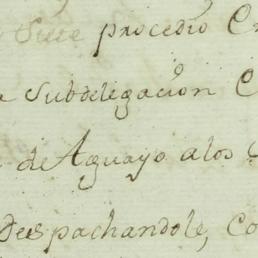 Siete procedio
Subdelegacion
de Aguayo a los
Despachandole, co